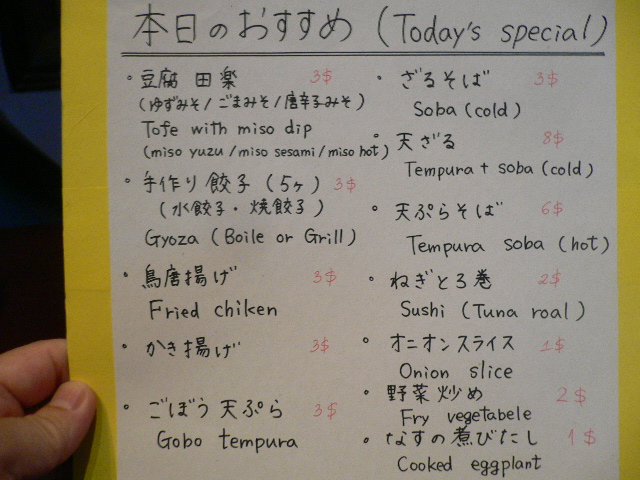 本日のおすすめ (Today's special)
・豆腐 田楽 3$
(ゆずみそ/ごまみそ/唐辛子みそ)
Tofe with miso dip
(miso yuzu/miso sesami/miso hot)
・手作り餃子(5ヶ) 3$
(水餃子・焼餃子)
Gyoza (Boile or Grill)
・鳥唐揚げ 3$
Fried chiken
・かき揚げ 3$
・ごぼう天ぷら 3$
Gobo tempura
・ざるそば 3$
Soba (cold)
・天ざる 8$
Tempura + soba (cold)
・天ぷらそば 6$
Tempura soba (hot)
・ねぎとろ巻 2$
Sushi (Tuna roal)
・オニオンスライス 1$
Onion slice
・野菜炒め 2$
Fry vegetabele
・なすの煮びたし 1$
Cooked eggplant